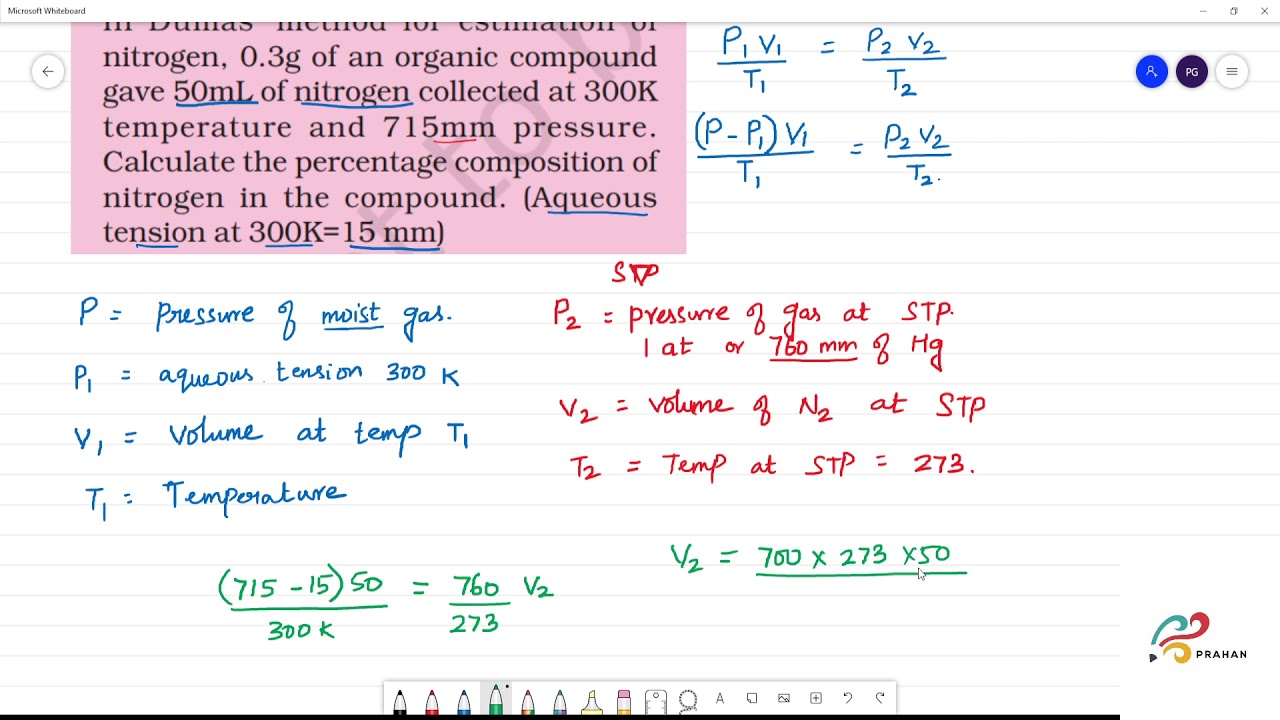 Microsoft Whiteboard
In Dumas' method for estimation of
nitrogen, 0.3g of an organic compound
gave 50mL of nitrogen collected at 300K
temperature and 715mm pressure.
Calculate the percentage composition of
nitrogen in the compound. (Aqueous
tension at 300K=15 mm)
P₁ V₁ / T₁ = P₂ V₂ / T₂
(P - P₁) V₁ / T₁ = P₂ V₂ / T₂.
PG
P = Pressure of moist gas.
P₁ = aqueous tension 300 K
V₁ = Volume at temp T₁
T₁ = Temperature
STP
P₂ = pressure of gas at STP.
1 at or 760 mm of Hg
V₂ = Volume of N₂ at STP
T₂ = Temp at STP = 273.
(715 - 15) 50 / 300 K = 760 / 273 V₂
V₂ = 700 x 273 x 50
PRAHAN
A